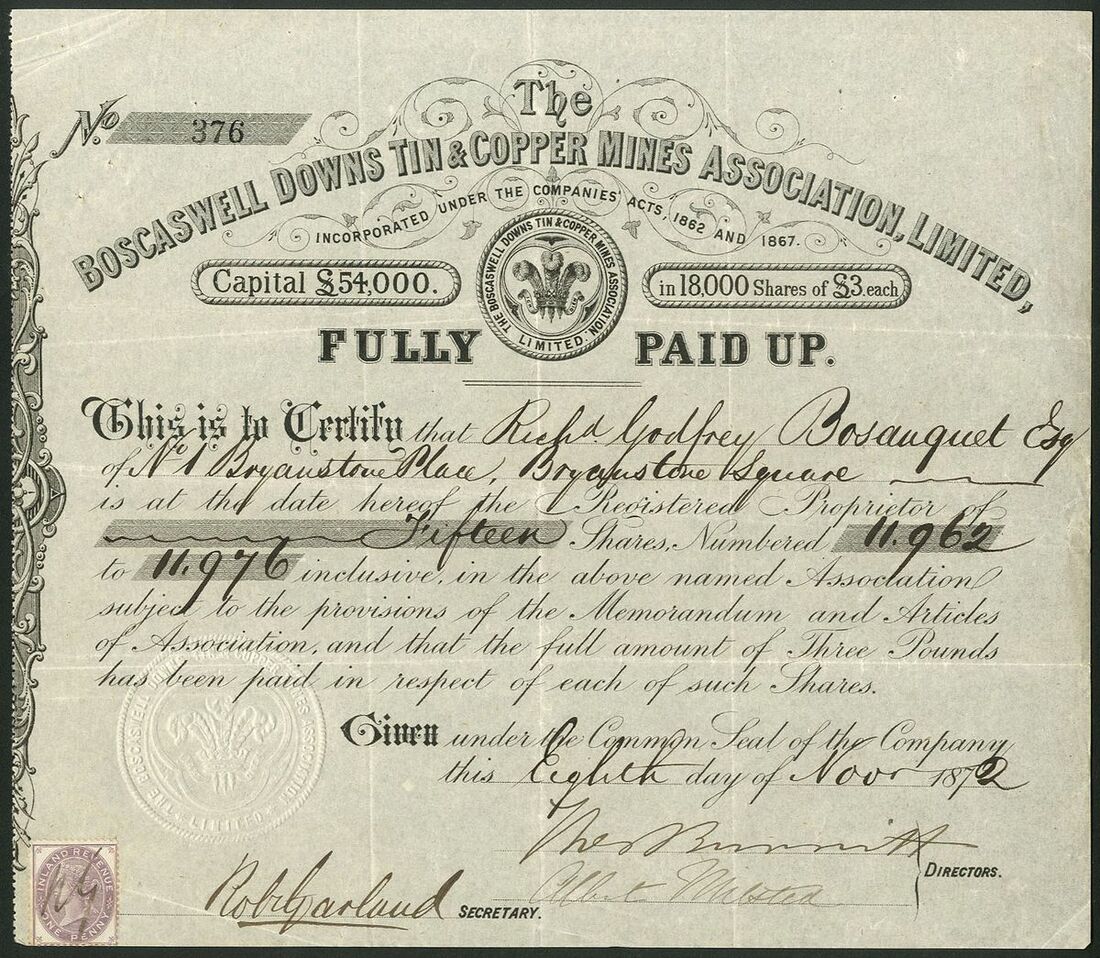 No. 376
The
BOSCASWELL DOWNS TIN & COPPER MINES ASSOCIATION, LIMITED,
INCORPORATED UNDER THE COMPANIES' ACTS, 1862 AND 1867.
Capital £54,000.
THE BOSCASWELL DOWNS TIN & COPPER MINES ASSOCIATION LIMITED.
in 18,000 Shares of £3. each
FULLY PAID UP.
This is to Certify that Richd Godfrey Bosanquet Esq
of No 1 Bryanstone Place, Bryanstone Square
is at the date hereof the Registered Proprietor of
Fifteen Shares, Numbered 11.962
to 11.976 inclusive, in the above named Association
subject to the provisions of the Memorandum and Articles
of Association, and that the full amount of Three Pounds
has been paid in respect of each of such Shares.
THE BOSCASWELL DOWNS TIN & COPPER MINES ASSOCIATION LIMITED
Given under the Common Seal of the Company
this Eighth day of Novr 1872
DIRECTORS.
Robt Garland SECRETARY.
INLAND REVENUE
ONE PENNY